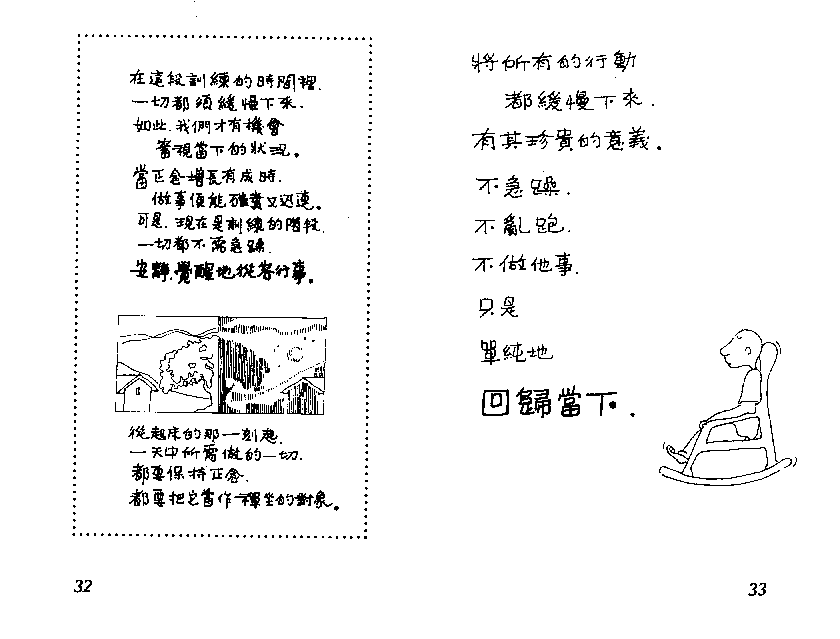 在這段訓練的時間裡.
一切都須緩慢下來.
如此.我們才有機會
審視當下的狀況。
當正念增長有成時.
做事便能確實又迅速。
可是.現在是訓練的階段.
一切都不需急躁.
安靜.覺醒地從容行事。
從起床的那一刻起.
一天中所需做的一切.
都要保持正念.
都要把它當作禪坐的對象。
32
將所有的行動
都緩慢下來.
有其珍貴的意義。
不急躁.
不亂跑.
不做他事.
只是
單純地
回歸當下.
33